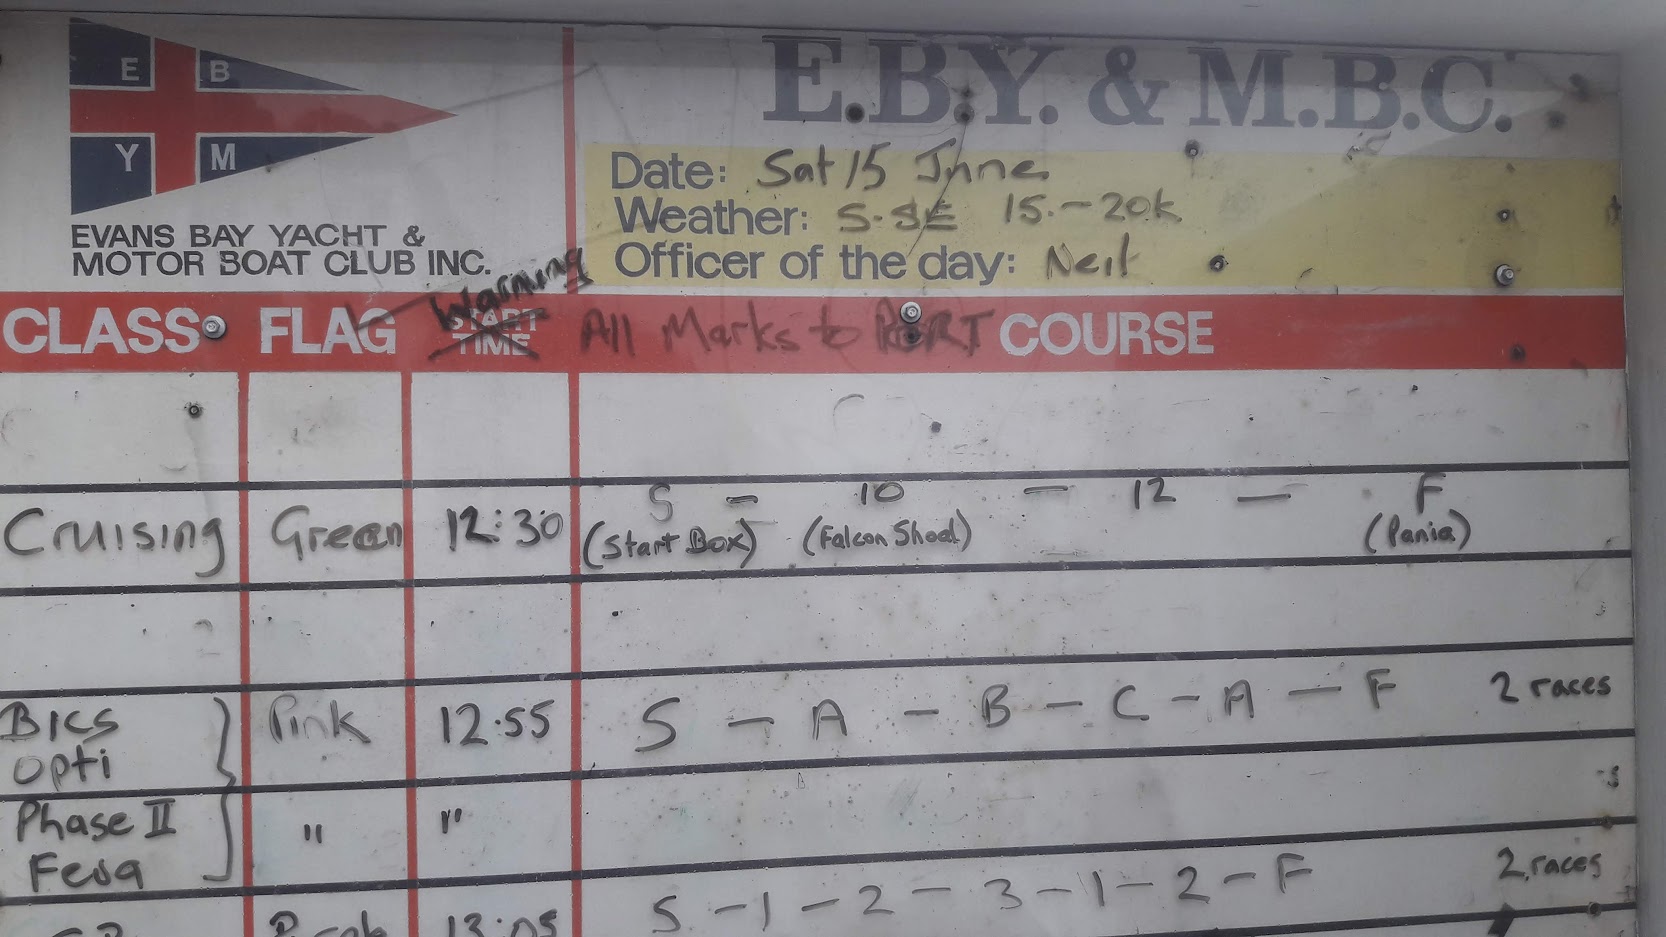 E B
Y M
EVANS BAY YACHT &
MOTOR BOAT CLUB INC.
E.B.Y. & M.B.C.
Date: Sat 15 June
Weather: S-SE 15-20k
Officer of the day: Neil
CLASS FLAG Warning START TIME All Marks to PORT COURSE
Cruising Green 12:30 S - 10 - 12 - F
(Start Box) (Falcon Shoal) (Pania)
BICS Pink 12.55 S - A - B - C - A - F 2 races
Opti
Phase II " "
Feva
S - 1 - 2 - 3 - 1 - 2 - F 2 races
13:05